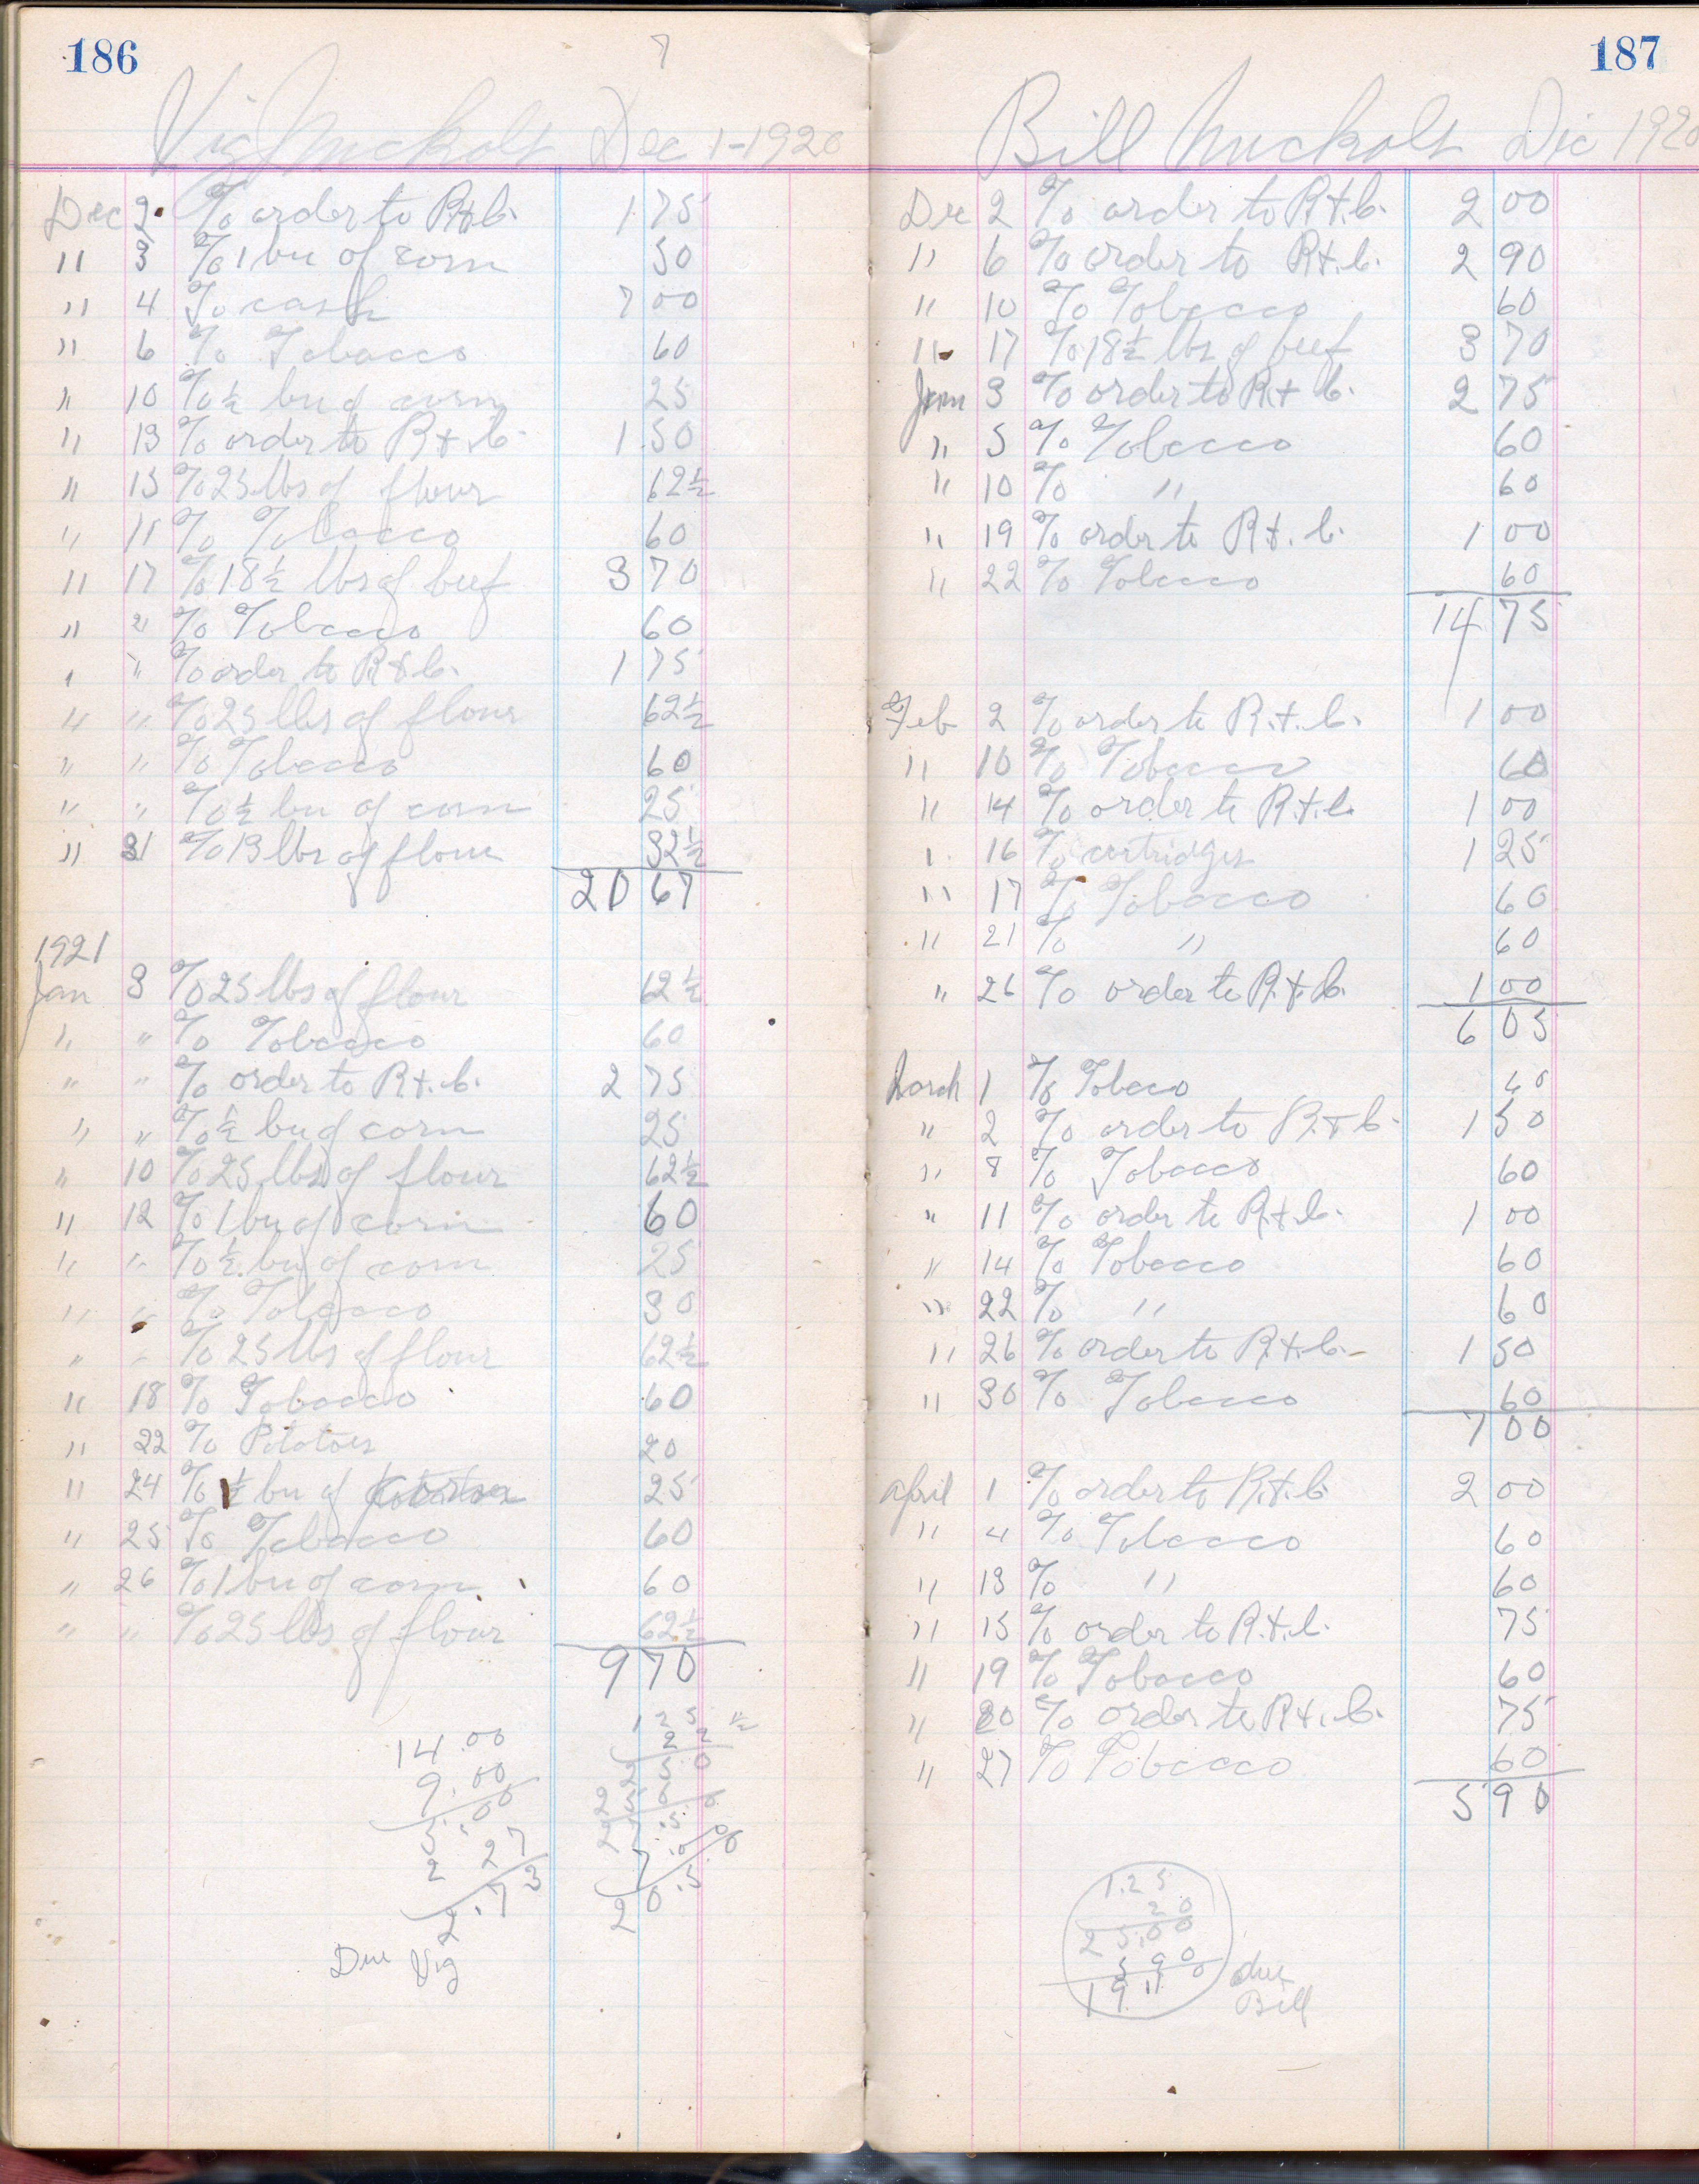 186
7
Vig Nuckols Dec 1-1920
Dec 2 % order to R+b. 1 75
" 3 % 1 bu of corn 50
" 4 % cash 7 00
" 6 % Tobacco 60
" 10 % ½ bu of corn 25
" 13 % order to R+.b. 1.50
" 15 % 25 lbs of flour 62½
" 15 % Tobacco 60
" 17 % 18½ lbs of beef 3 70
" 21 % Tobacco 60
" " % order to R+b. 1 75
" " % 25 lbs of flour 62½
" " % Tobacco 60
" " % ½ bu of corn 25
" 31 % 13 lbs of flour 32½
20 67
1921
Jan 3 % 25 lbs of flour 62½
" " % Tobacco 60
" " % order to R+.b. 2 75
" " % ½ bu of corn 25
" 10 % 25 lbs of flour 62½
" 12 % 1 bu of corn 60
" " % ½ bu of corn 25
" " % Tobacco 30
" " % 25 lbs of flour 62½
" 18 % Tobacco 60
" 22 % Potatoes 20
" 24 % ½ bu of 25
" 25 % Tobacco 60
" 26 % 1 bu of corn 60
" " % 25 lbs of flour 62½
9 70
14.00
9.00
5.00
2 27
2.73
Due Vig
1 25 ½
2 2
2 5 0
2 5 0
.50
7.00
20.5
187
Bill Nuckols Dec 1920
Dec 2 % order to R+.b. 2 00
" 6 % order to R+.b. 2 90
" 10 % Tobacco 60
" 17 % 18½ lbs of beef 3 70
Jan 3 % order to R+ b. 2 75
" 5 % Tobacco 60
" 10 % " 60
" 19 % order to R+. b. 1 00
" 22 % Tobacco 60
14 75
Feb 2 % order to R.+.b. 1 00
" 10 % Tobacco 60
" 14 % order to R.+.b. 1 00
" 16 % cartridges 1 25
" 17 % Tobacco 60
" 21 % " 60
" 26 % order to R.+.b. 1 00
6 05
March 1 % Tobaco 60
" 2 % order to R.+b. 1 50
" 8 % Tobacco 60
" 11 % order to R.+.b. 1 00
" 14 % Tobacco 60
" 22 % " 60
" 26 % order to R.+.b. 1 50
" 30 % Tobacco 60
7 00
April 1 % order to R.+.b 2 00
" 4 % Tobacco 60
" 13 % " 60
" 15 % order to R.+.b. 75
" 19 % Tobacco 60
" 20 % order to R+.b. 75
" 27 % Tobacco 60
5 90
1.25
20
25.00
5 90
19.10
due
Bill